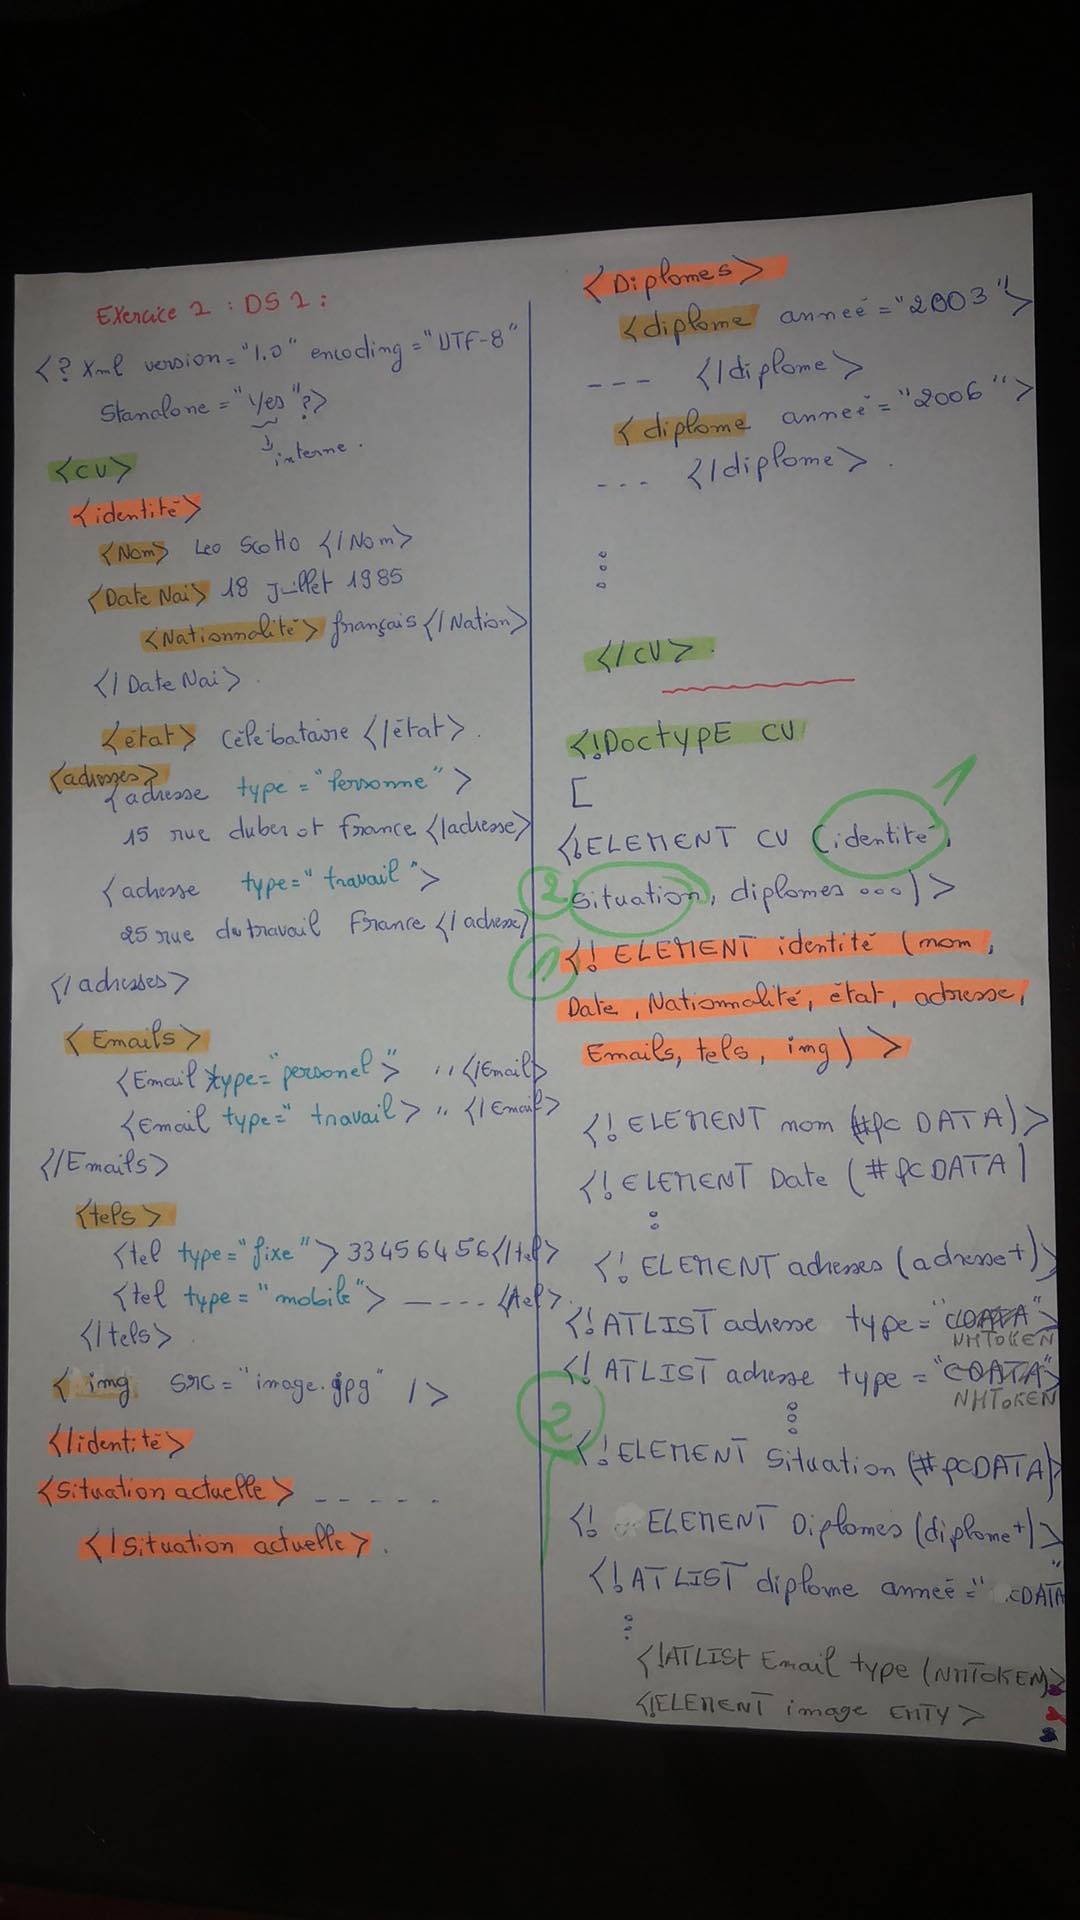 Exercice 2 : DS 1 :
<? Xml version="1.0" encoding="UTF-8"
Stanalone="Yes"?>
interne.
<CV>
<identité>
<Nom> Leo Scotto </Nom>
<Date Nai> 18 Juillet 1985
<Nationnalité> français </Nation>
</Date Nai>.
<état> Célébataire </état>.
<adresses>
<adresse type="Personne">
15 rue duberot france </adresse>
<adresse type="travail">
25 rue du travail France </adresse>
</adresses>
<Emails>
<Email type="personel"> " </Email>
<Email type="travail> " </Email>
</Emails>
<tels>
<tel type="fixe"> 33456456</tel>
<tel type="mobile"> ---- </tel>.
</tels>.
<img src="image.jpg" />
</identité>
<Situation actuelle> -----
</Situation actuelle>.
<Diplomes>
<diplome anneé="2003">
--- </diplome>
<diplome anneé="2006">
--- </diplome>.
</CV>.
<!DoctypE CV
[
1
<!ELEMENT CV (identité,
2 Situation, diplomes ...)>
1 <! ELEMENT identité (nom,
Date, Nationnalité, état, adresse,
Emails, tels, img)>
<! ELEMENT nom (#PCDATA)>
<! ELEMENT Date (#PCDATA)
<! ELEMENT adresses (adresse+)>
<! ATLIST adresse type="CDATA">
NMTOKEN
<! ATLIST adresse type="CDATA">
NMTOKEN
2
<! ELEMENT Situation (#PCDATA)>
<! ELEMENT Diplomes (diplome+)>
<! ATLIST diplome anneé="CDATA"
<!ATLISt Email type (NMTOKEN)>
<!ELEMENT image EMTY>